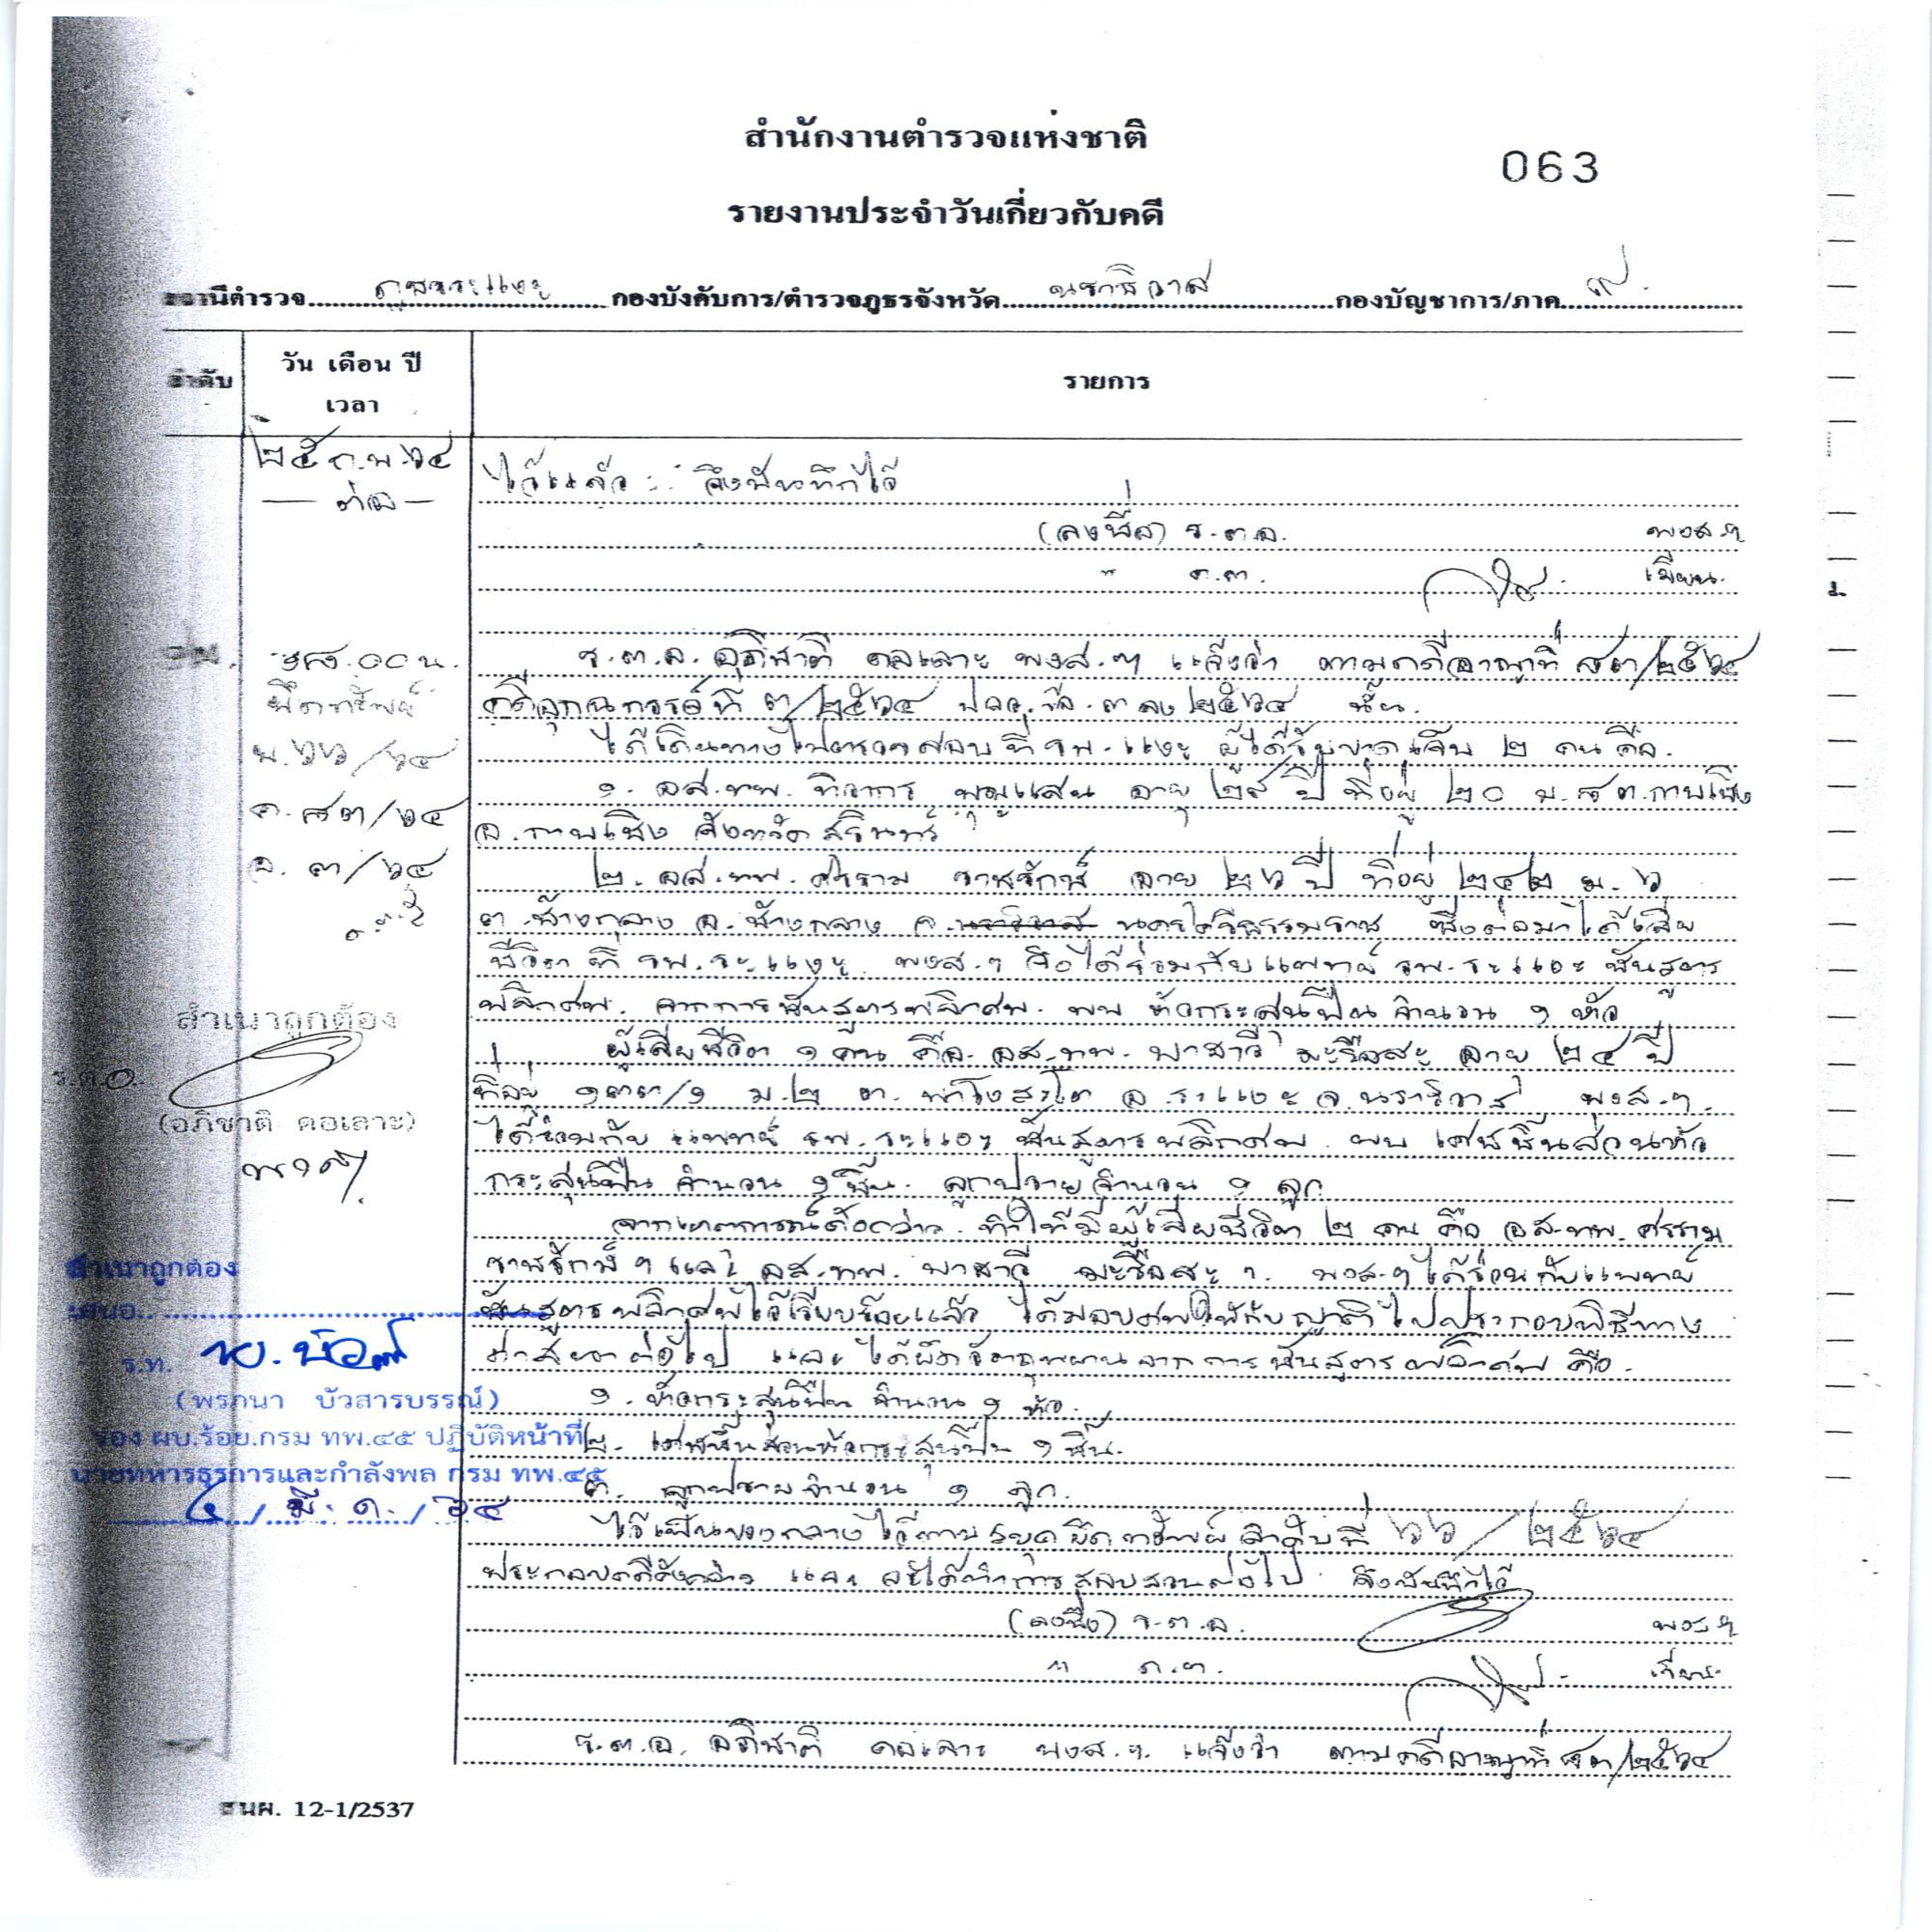 สำนักงานตำรวจแห่งชาติ
063
รายงานประจำวันเกี่ยวกับคดี
สถานีตำรวจ ภูธรระแงะ กองบังคับการ/ตำรวจภูธรจังหวัด นราธิวาส กองบัญชาการ/ภาค ๙.
ลำดับ วัน เดือน ปี เวลา รายการ
๒๕ ก.พ. ๖๔
— ต่อ —
ไว้แล้ว จึงบันทึกไว้
(ลงชื่อ) ร.ต.อ. พงส.ฯ
" ด.ต. เสมียน.
๑๙.๐๐ น.
ยึดทรัพย์
๖๖/๖๔
ค. ๘๓/๖๔
๓/๖๔
ร.ต.อ. อภิชาติ ดอเลาะ พงส.ฯ แจ้งว่า ตามคดีอาญาที่ ๘๓/๒๕๖๔
คดีอุกฉกรรจ์ที่ ๓/๒๕๖๔ ๒๕๖๔ นั้น.
ได้เดินทางไปตรวจสอบที่ รพ.ระแงะ ผู้ได้รับบาดเจ็บ ๒ คน คือ.
๑. อส.ทพ. ทิวากร พูนแสน อายุ ๒๕ ปี ที่อยู่ ๒๐ ม.๘ ต.กาบเชิง
อ.กาบเชิง จังหวัด สุรินทร์
๒. อส.ทพ. ศรราม ราชรักษ์ อายุ ๒๖ ปี ที่อยู่ ๒๔๒ ม.๖
ต.ช้างกลาง อ.ช้างกลาง จ. นครศรีธรรมราช ซึ่งต่อมาได้เสีย
ชีวิต ที่ รพ.ระแงะ พงส.ฯ จึงได้ร่วมกับแพทย์ รพ.ระแงะ ชันสูตร
พลิกศพ. จากการชันสูตรพลิกศพ. พบ หัวกระสุนปืน จำนวน ๑ หัว
ผู้เสียชีวิต ๑ คน คือ. อส.ทพ. บาฮารี มะรือสะ อายุ ๒๔ ปี
ที่อยู่ ๑๓๓/๑ ม.๒ ต. บาโงสะโต อ.ระแงะ จ.นราธิวาส พงส.ฯ.
ได้ร่วมกับ แพทย์ รพ.ระแงะ ชันสูตรพลิกศพ พบ เศษชิ้นส่วนหัว
กระสุนปืน จำนวน ๑ ชิ้น. ลูกปราย จำนวน ๑ ลูก
จากเหตุการณ์ดังกล่าว ทำให้มีผู้เสียชีวิต ๒ คน คือ อส.ทพ. ศรราม
ราชรักษ์ ฯ และ อส.ทพ. บาฮารี มะรือสะ ฯ. พงส.ฯ ได้ร่วมกับแพทย์
ชันสูตรพลิกศพไว้เรียบร้อยแล้ว ได้มอบศพให้กับญาติไปประกอบพิธีทาง
ศาสนาต่อไป และได้ยึดวัตถุพยานจากการชันสูตรพลิกศพ คือ.
๑. หัวกระสุนปืน จำนวน ๑ หัว.
๒. เศษชิ้นส่วนหัวกระสุนปืน ๑ ชิ้น.
๓. ลูกปราย จำนวน ๑ ลูก.
ไว้เป็นของกลาง ไว้ตามสมุดยึดทรัพย์ลำดับที่ ๖๖/๒๕๖๔
ประกอบคดีดังกล่าว และ จะได้ทำการสอบสวนต่อไป จึงบันทึกไว้
(ลงชื่อ) ร.ต.อ. พงส.ฯ
" ด.ต. เสมียน
ร.ต.อ. อภิชาติ ดอเลาะ พงส.ฯ. แจ้งว่า ตามคดีอาญาที่ ๘๓/๒๕๖๔
สำเนาถูกต้อง
ร.ต.อ.
(อภิชาติ ดอเลาะ)
สำเนาถูกต้อง
เสนอ
ร.ท.
(พรภนา บัวสารบรรณ์)
รอง ผบ.ร้อย.กรม ทพ.๔๕ ปฏิบัติหน้าที่
นายทหารธุรการและกำลังพล กรม ทพ.๔๕
๔ / มี.ค. / ๖๔
สนผ. 12-1/2537